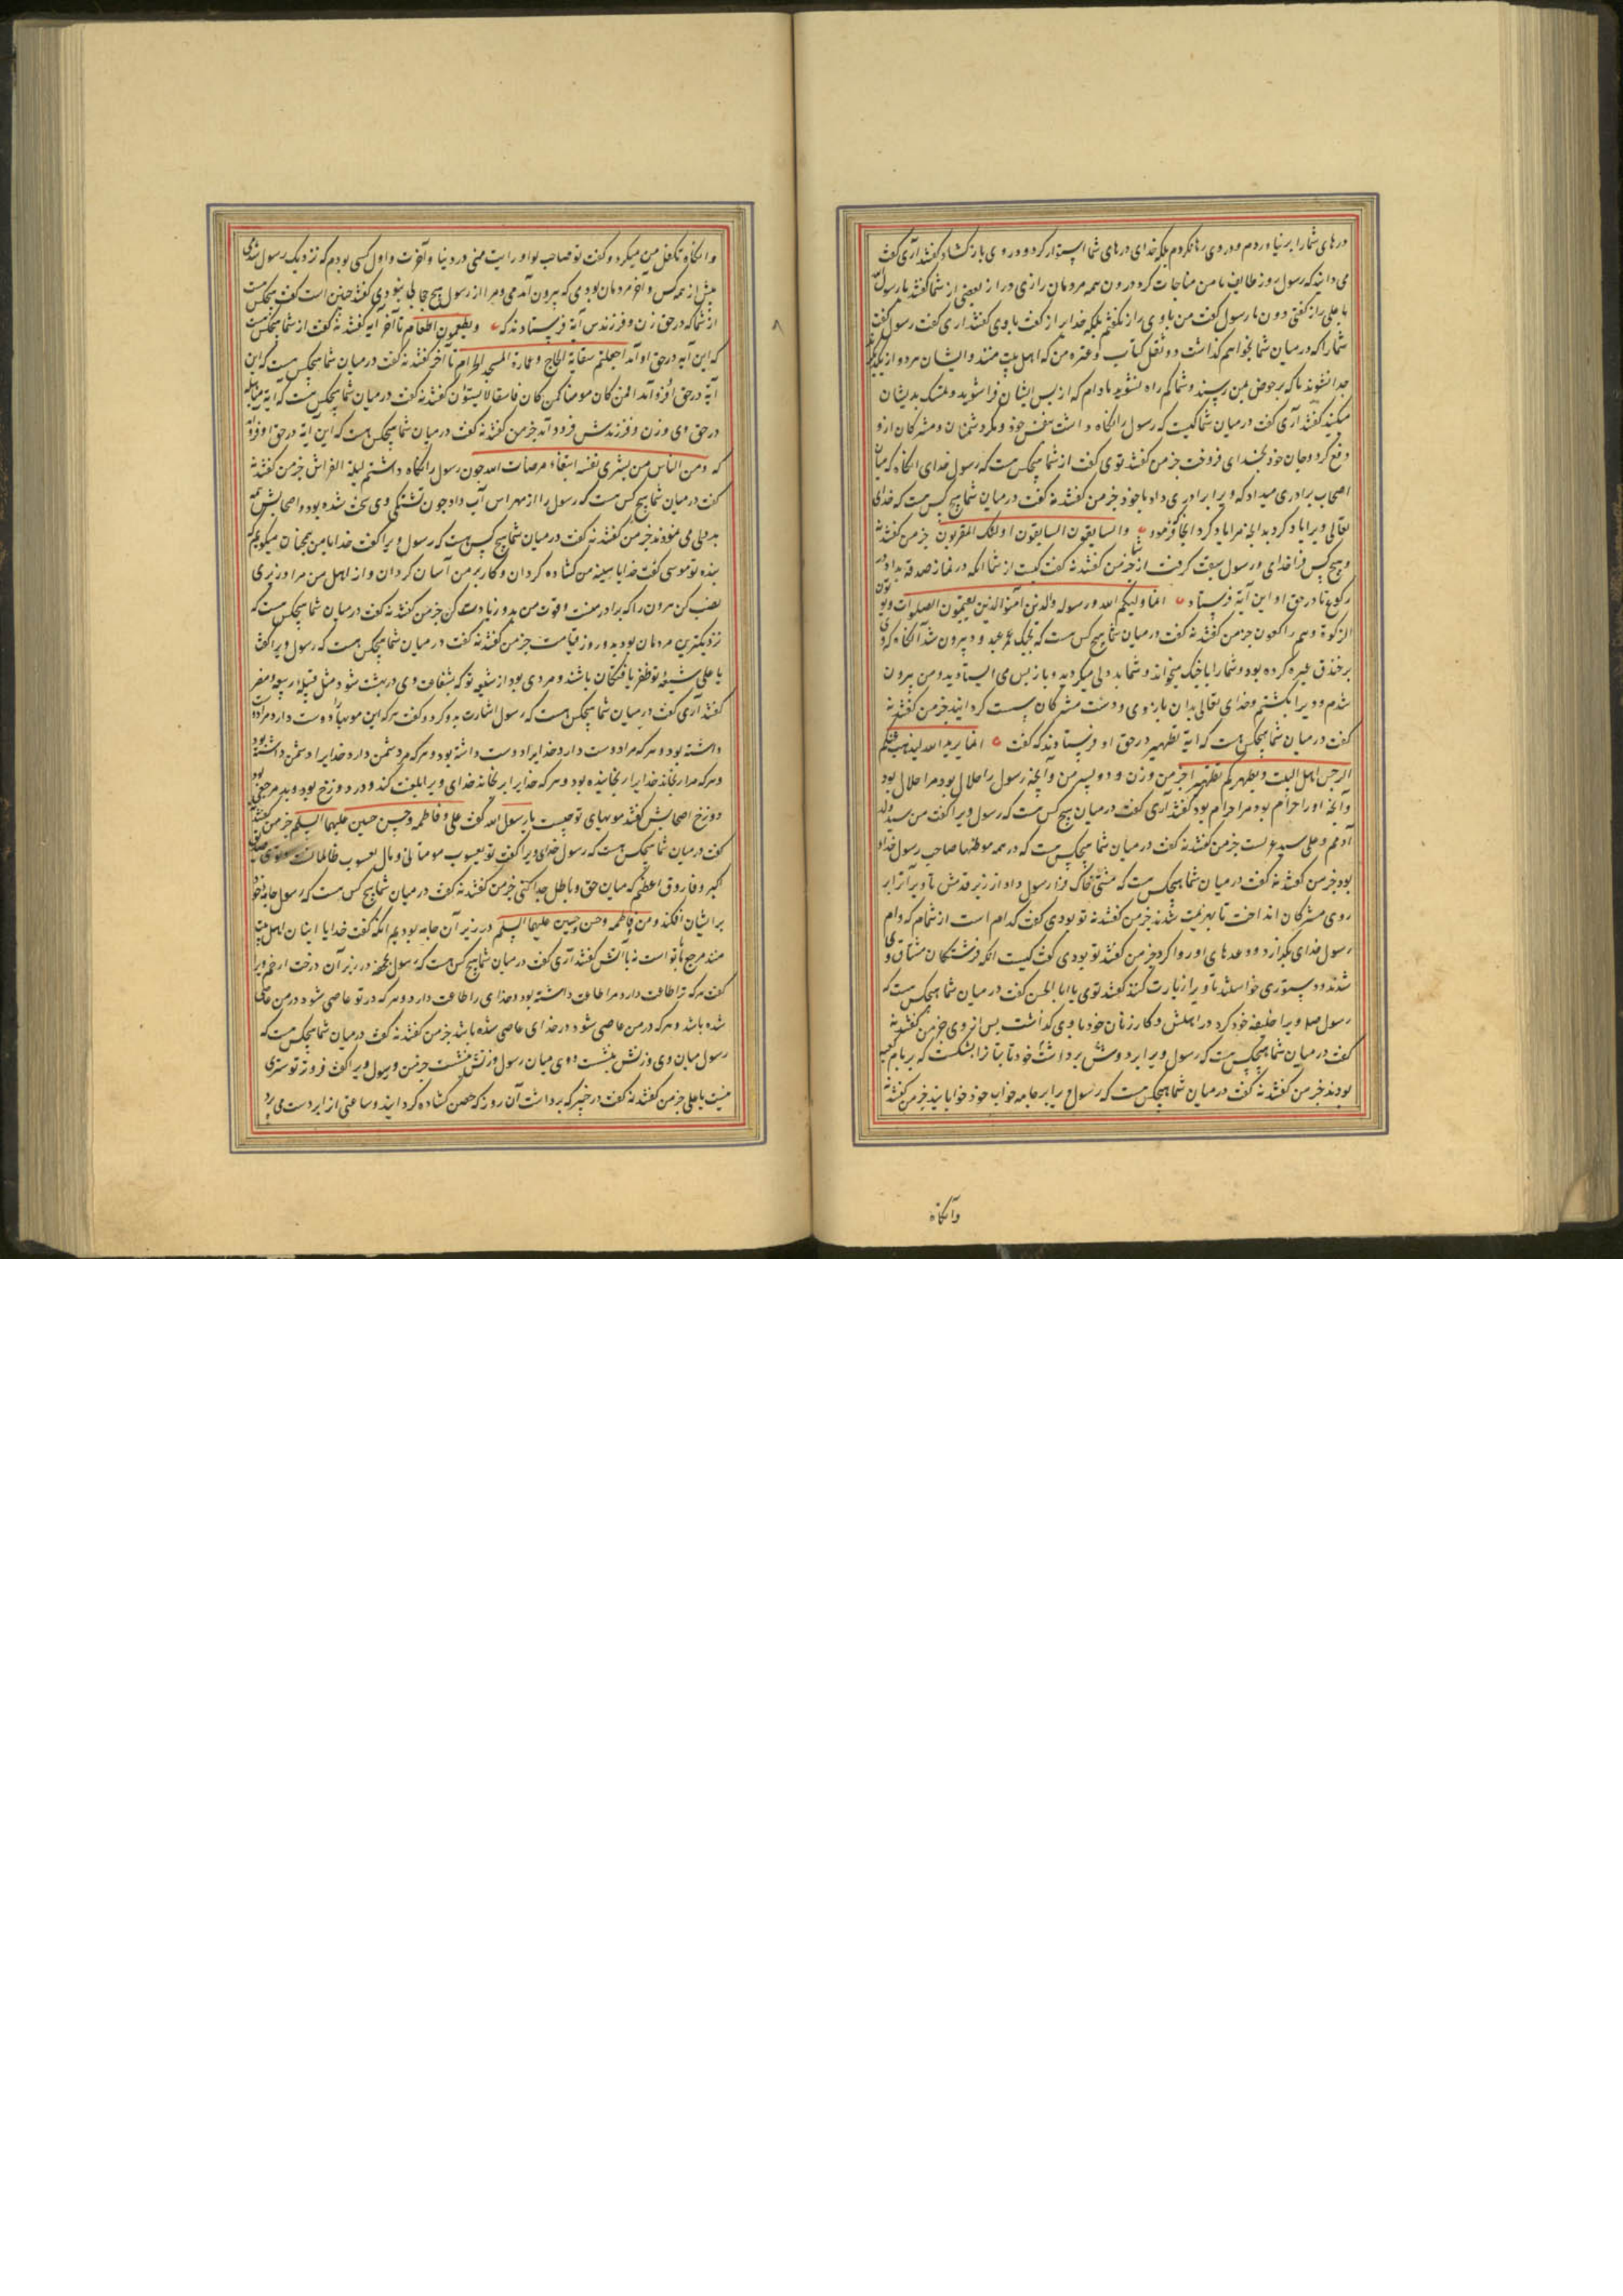 درهای شما را برنیاوردم و در وی رها نکردم بلکه خدای درهای شما استوار کرد و در وی بازگشاد گفتند آری گفت
می دانید که رسول روز طایف با من مناجات کرد درون همه مردمان رازی دراز بعضی از شما گفتند یا رسول الله
با علی راز گفتی دون ما رسول گفت من با وی راز نگفتم بلکه خدای راز گفت با وی گفتند آری گفت رسول گفت
شما را که در میان شما بخواهم گذاشت دو ثقل کتاب و عترة من که اهل بیت منند و ایشان هر دو از یکدیگر
جدا نشوند تا که بر حوض بمن رسند و شما گمراه نشوید مادام که از پس ایشان فرا شوید و تمسک بدیشان
میکنید گفتند آری گفت در میان شما کیست که رسول را نگاه داشت بنفس خود و مکر دشمنان و مشرکان ازو
دفع کرد و جان خود بخدای فروخت جز من گفتند توی گفت از شما هیچکس هست که رسول خدای انگاه که میان
اصحاب برادری میداد که ویرا برادری داد با خود جز من گفتند نه گفت در میان شما هیچ کس هست که خدای
تعالی ویرا یاد کرد بدانچه مرا یاد کرد انجا که فرمود والسابقون السابقون اولئک المقربون جز من گفتند نه
و هیچ کس فرا خدای و رسول سبقت گرفت از شما جز من گفتند نه گفت کیست از شما انکه در نماز صدقه بداد در
رکوع تا در حق او این آیة فرستاد انما ولیکم الله ورسوله والذین آمنوا الذین یقیمون الصلوات ویوتون
الزکوة وهم راکعون جز من گفتند نه گفت در میان شما هیچ کس هست که بجنگ عمرو عبد ود بیرون شد آنگاه که وی
بر خندق عبره کرده بود و شما را با جنگ میخواند و شما بد دلی میکردید و باز پس می ایستادید و من بیرون
شدم و ویرا بکشتم و خدای تعالی بدان بازوی و دست مشرکان سست گردانید جز من گفتند نه
گفت در میان شما هیچکس هست که آیة تطهیر در حق او فرستادند که گفت انما یرید الله لیذهب عنکم
الرجس اهل البیت ویطهرکم تطهیرا جز من و زن و دو پسر من و آنچه رسول را حلال بود مرا حلال بود
و آنچه او را حرام بود مرا حرام بود گفتند آری گفت در میان هیچ کس هست که رسول ویرا گفت من سید ولد
آدمم و علی سید عربست جز من گفتند نه گفت در میان شما هیچکس هست که در همه موطنها صاحب رسول خدا
بود جز من گفتند نه گفت در میان شما هیچکس هست که مشتی خاک فرا رسول داد از زیر قدمش تا ویرا آن را بر
روی مشرکان انداخت تا بهزیمت شدند جز من گفتند نه تو بودی گفت کدام است از شما که وام
رسول خدای بگذارد و وعدهای او روا کرد جز من گفتند تو بودی گفت کیست انکه فرشتگان مشتاق وی
شدند و دستوری خواستند تا ویرا زیارت کنند گفتند توی یا ابا الحسن گفت در میان شما هیچکس هست که
رسول صلی ویرا خلیفه خود کرد در اهلش و کار زنان خود با وی گذاشت پس از وی جز من گفتند نه
گفت در میان شما هیچکس هست که رسول ویرا بر دوش برداشت خود تا بتان را بشکست که بر بام کعبه
بودند جز من گفتند نه گفت در میان شما هیچکس هست که رسول ویرا بر جامه خواب خود خوابانید جز من گفتند نه
وآنگاه
وانگاه تکفل من میکرد و گفت تو صاحب لوا و رایت منی در دنیا و آخرت و اول کسی بودم که نزدیک رسول شدی
پیش از همه کس و آخر مردمان بودی که بیرون آمدمی و مرا از رسول هیچ حجابی نبودی گفتند چنین است گفت هیچکس هست
از شما که در حق زن و فرزندش آیة فرستادند که ویطعمون الطعام تا آخر آیه گفتند نه گفت از شما هیچکس هست
که این آیه در حق او آمد اجعلتم سقایة الحاج وعمارة المسجد الحرام تا آخر گفتند نه گفت در میان شما هیچکس هست که این
آیة در حق او فرو آمد افمن کان مومنا کمن کان فاسقا لا یستوٗن گفتند نه گفت در میان شما هیچکس هست که آیة مباهله
در حق وی و زن و فرزندش فرود آمد جز من گفتند نه گفت در میان شما هیچکس هست که این آیة در حق او فرو آمد
که ومن الناس من یشری نفسه ابتغاء مرضات الله چون رسول را نگاه داشتم لیلة الفراش جز من گفتند نه
گفت در میان شما هیچ کس هست که رسول را از مهراس آب داد چون تشنگی وی سخت شده بود و اصحابش همه
بد دلی می نمودند جز من گفتند نه گفت در میان شما هیچ کس هست که رسول ویرا گفت خدایا من همچنان میگویم که
بنده تو موسی گفت خدایا سینه من گشاده گردان و کار بر من آسان گردان و از اهل من مرا وزیری
نصب کن هرون را که برادر منست و قوت من بدو زیادت کن جز من گفتند نه گفت در میان شما هیچکس هست که
نزدیکترین مردمان بود بدو روز قیامت جز من گفتند نه گفت در میان شما هیچکس هست که رسول ویرا گفت
یا علی شیعه تو ظفر یافتگان باشند و مردی بود از شیعه تو که بشفاعت وی در بهشت شود مثل قبیله ربیعه و مضر
گفتند آری گفت در میان شما هیچکس هست که رسول اشارت بدو کرد و گفت هر که این مویها را دوست دارد مرا دوست
داشته بود و هر که مرا دوست دارد خدایرا دوست داشته بود و هر که مرا دشمن دارد خدایرا دشمن داشته بود
و هر که مرا برنجاند خدایرا رنجانیده بود و هر که خدایرا برنجاند خدای ویرا بلعنت کند و در دوزخ بود و بد مرجعی بود
دوزخ اصحابش گفتند مویهای تو چیست یا رسول الله گفت علی و فاطمه و حسن حسین علیهما السلم جز من گفتند نه
گفت در میان شما هیچکس هست که رسول خدای ویرا گفت تو یعسوب مومنانی و مال یعسوب ظالمانست و توی صدیق
اکبر و فاروق اعظم که میان حق و باطل جدا کنی جز من گفتند نه گفت در میان شما هیچ کس هست که رسول جامه خود
بر ایشان افکند و من و فاطمه وحسن وحسین علیهما السلم در زیر آن جامه بودیم انگه گفت خدایا اینان اهل بیت
منند مرجع ما با تو است نه با آتش گفتند آری گفت در میان شما هیچ کس هست که رسول بجحفه در زیر آن درخت ار خم ویرا
گفت هر که ترا طاعت دارد مرا طاعت داشته بود و خدای را طاعت دارد و هر که در تو عاصی شود در من عاصی
شده باشد و هر که در من عاصی شود در خدای عاصی شده باشد جز من گفتند نه گفت در میان شما هیچکس هست که
رسول میان وی و زنش بنشست و وی میان رسول و زنش بنشست جز من و رسول ویرا گفت فروتر تو ستری
نیست یا علی جز من گفتند نه گفت در خیبر که برداشت آن روز که حصن گشاده گردانید و ساعتی از ابر دست می برد